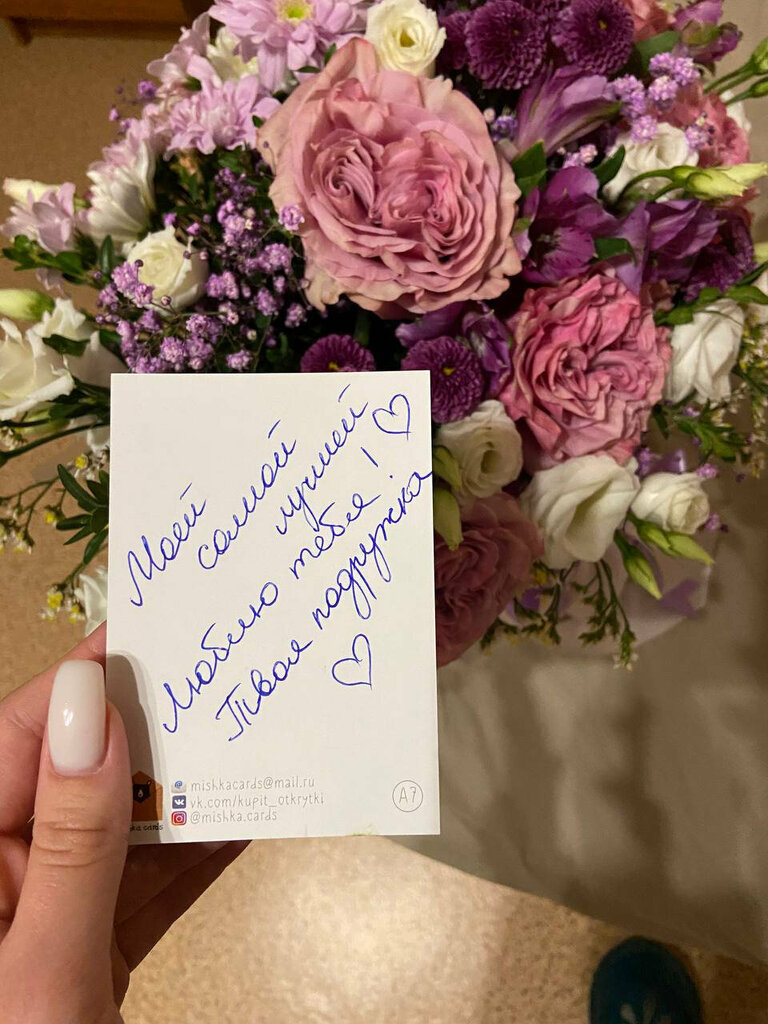 Моей
самой
лучшей ♡
Люблю тебя!
Твоя подружка
♡
mishkacards@mail.ru
vk.com/kupit_otkrytki
@mishka.cards
ka cards
A7